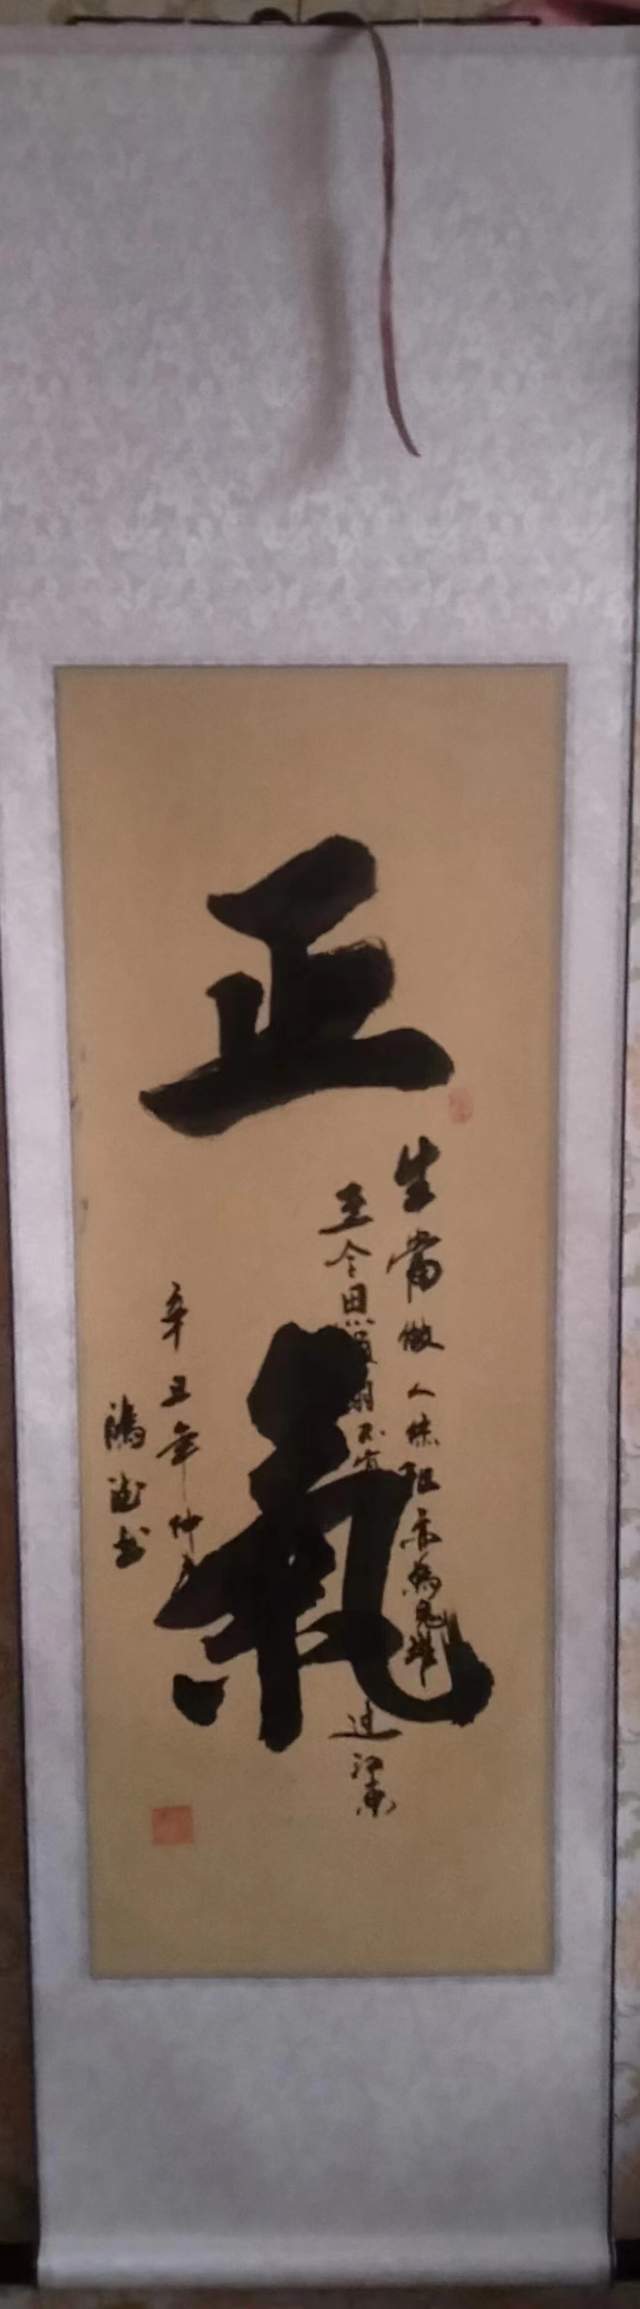 正氣
生當做人傑死亦為鬼雄
至今思項羽不肯過江東
辛丑年仲
书